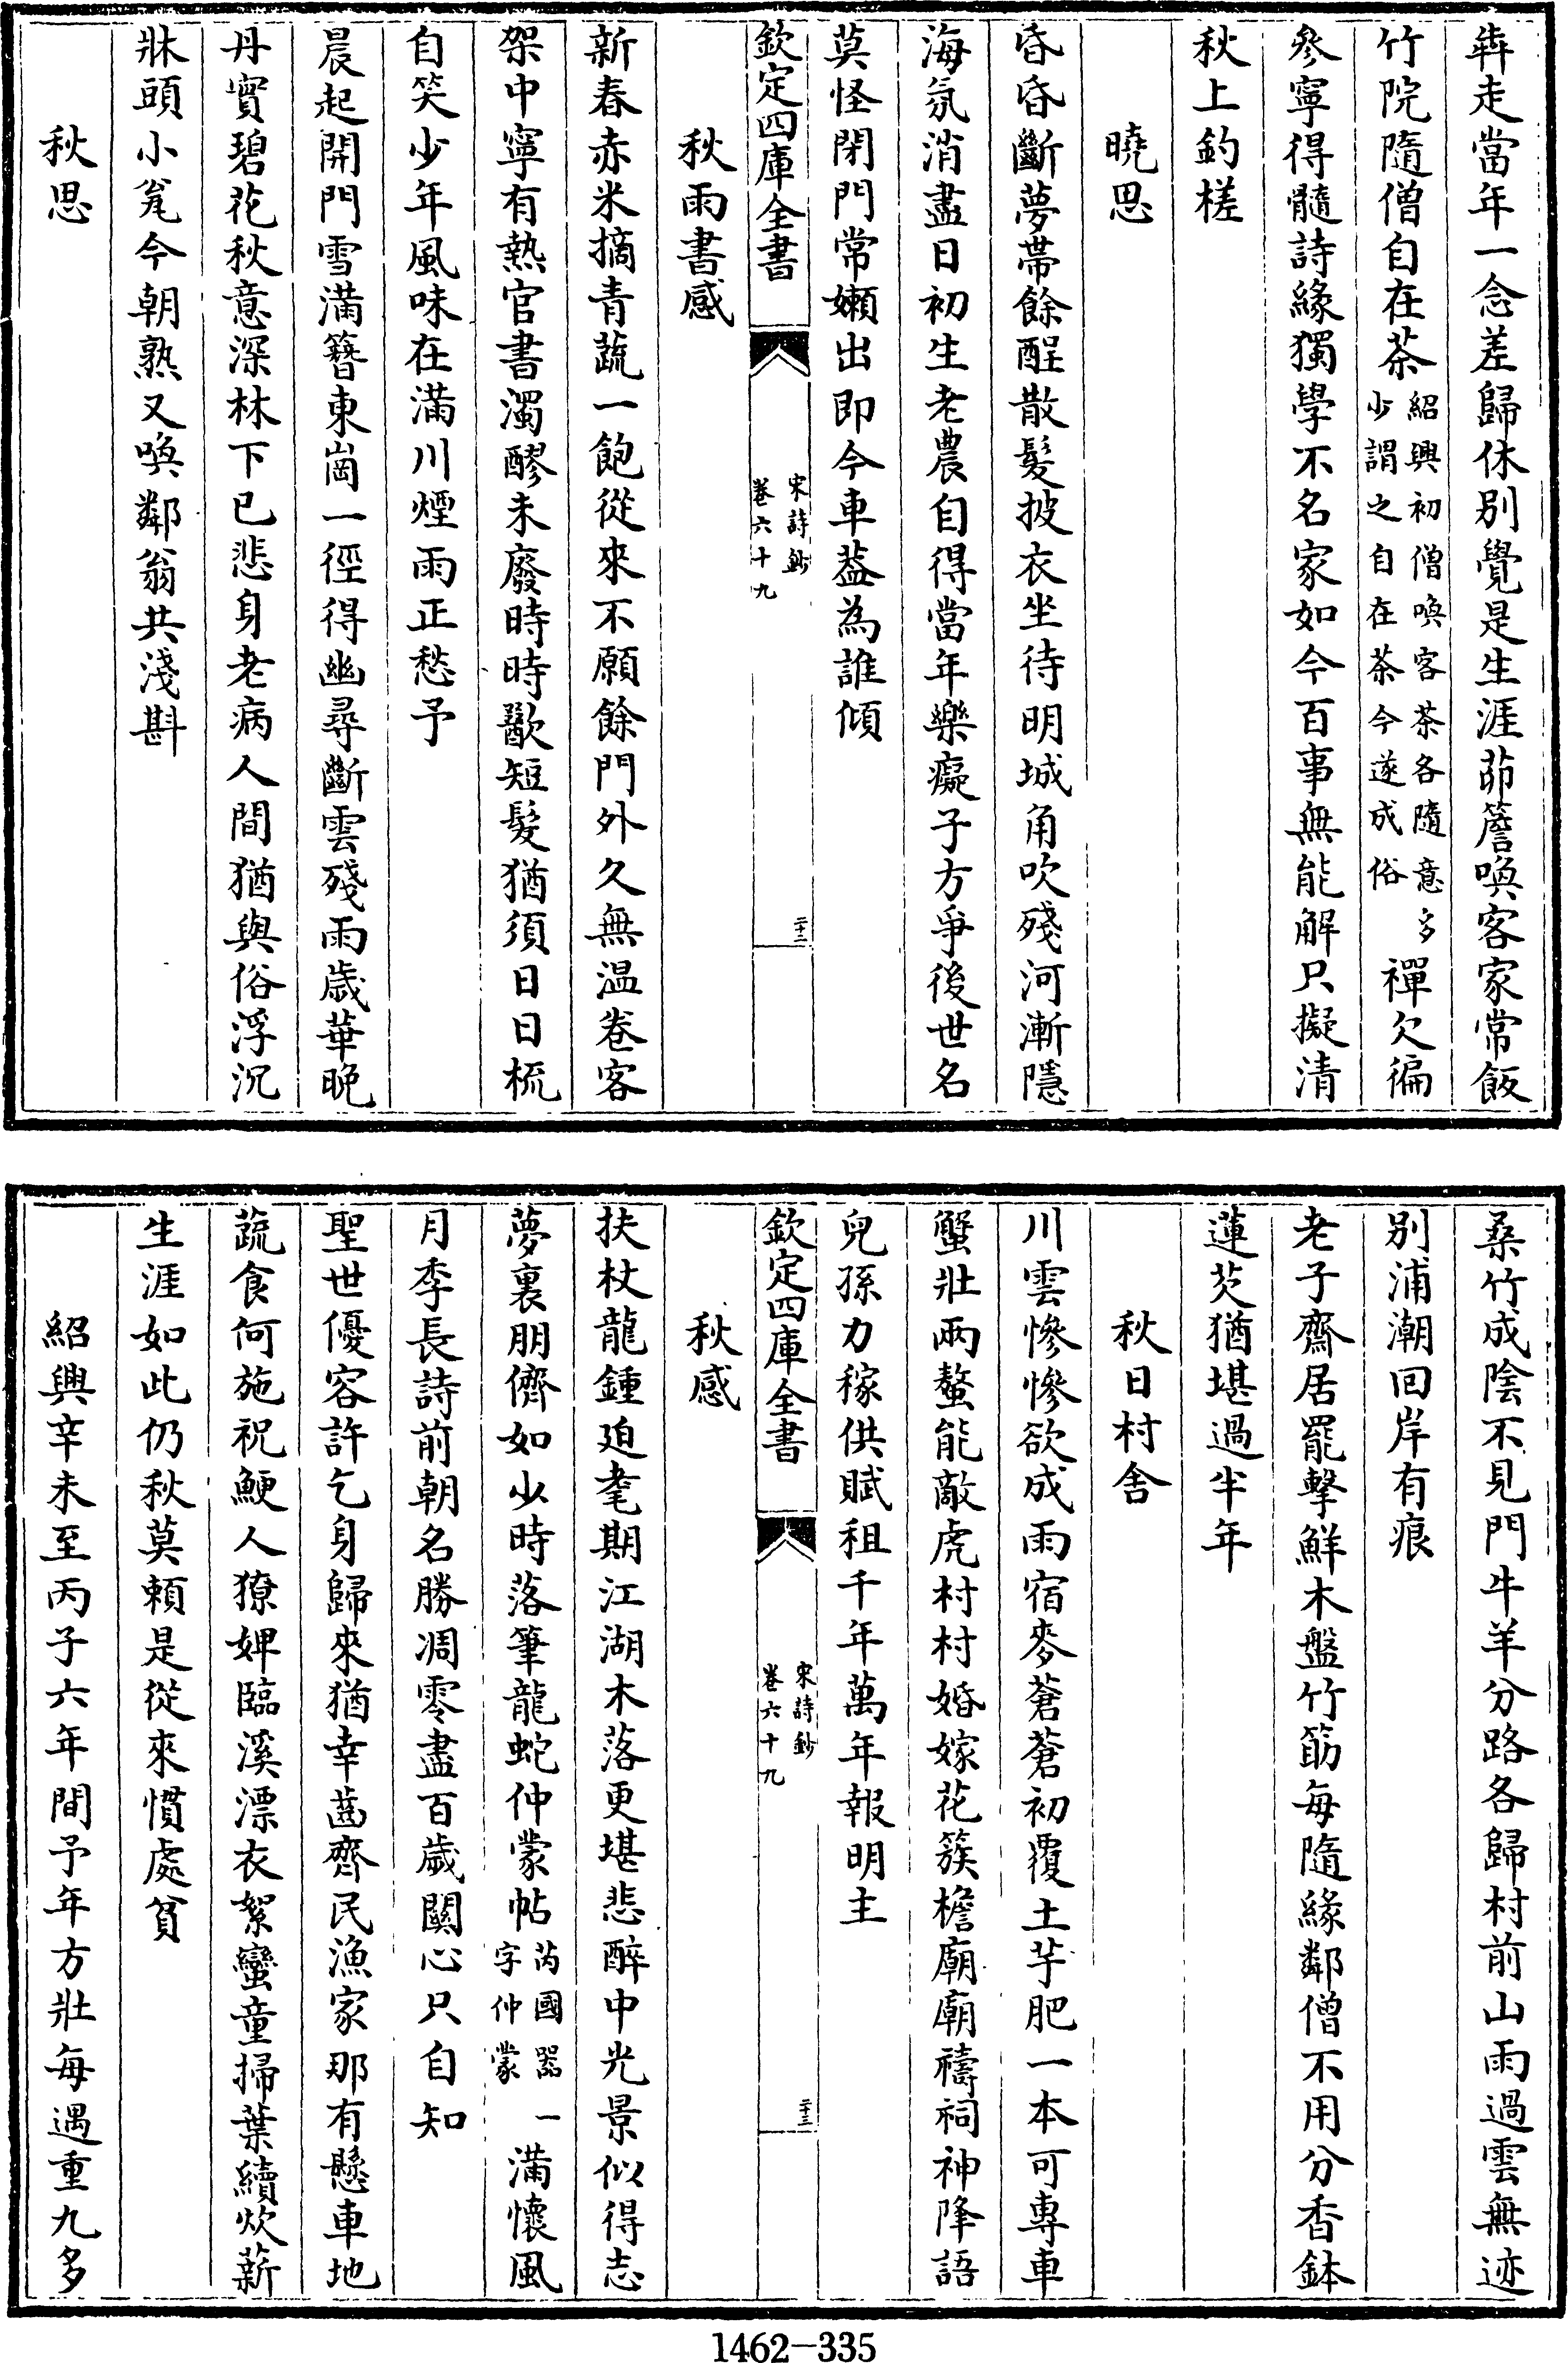 犇走當年一念差歸休别覺是生涯茆簷喚客家常飯
竹院隨僧自在茶紹興初僧喚客茶各隨意多少謂之自在茶今遂成俗禪欠徧
參寧得髓詩緣獨學不名家如今百事無能解只擬清
秋上釣槎
曉思
昏昏斷夢帶餘酲散髮披衣坐待明城角吹殘河漸隱
海氛消盡日初生老農自得當年樂癡子方爭後世名
莫怪閉門常嬾出即今車葢為誰傾
欽定四庫全書
宋詩鈔
卷六十九
二十二
秋雨書感
新春赤米摘青蔬一飽從來不願餘門外久無温卷客
架中寧有熱官書濁醪未廢時時歠短髮猶須日日梳
自笑少年風味在滿川煙雨正愁予
晨起開門雪滿簪東崗一徑得幽尋斷雲殘雨歲華晚
丹實碧花秋意深林下已悲身老病人間猶與俗浮沉
牀頭小瓮今朝熟又喚鄰翁共淺斟
秋思
桑竹成陰不見門牛羊分路各歸村前山雨過雲無迹
别浦潮回岸有痕
老子齋居罷擊鮮木盤竹筯每隨緣鄰僧不用分香鉢
蓮芡猶堪過半年
秋日村舍
川雲慘慘欲成雨宿麥蒼蒼初覆土芋肥一本可專車
蟹壯兩螯能敵虎村村婚嫁花簇檐廟廟禱祠神降語
兒孫力稼供賦租千年萬年報明主
欽定四庫全書
宋詩鈔
卷六十九
二十三
秋感
扶杖龍鍾廹耄期江湖木落更堪悲醉中光景似得志
夢裏朋儕如少時落筆龍蛇仲蒙帖芮國器字仲蒙一滿懷風
月季長詩前朝名勝凋零盡百歲關心只自知
聖世優容許乞身歸來猶幸齒齊民漁家那有懸車地
蔬食何施祝鯁人獠婢臨溪漂衣絮蠻童掃葉續炊薪
生涯如此仍秋莫賴是從來慣處貧
紹興辛未至丙子六年間予年方壯每遇重九多
1462-335